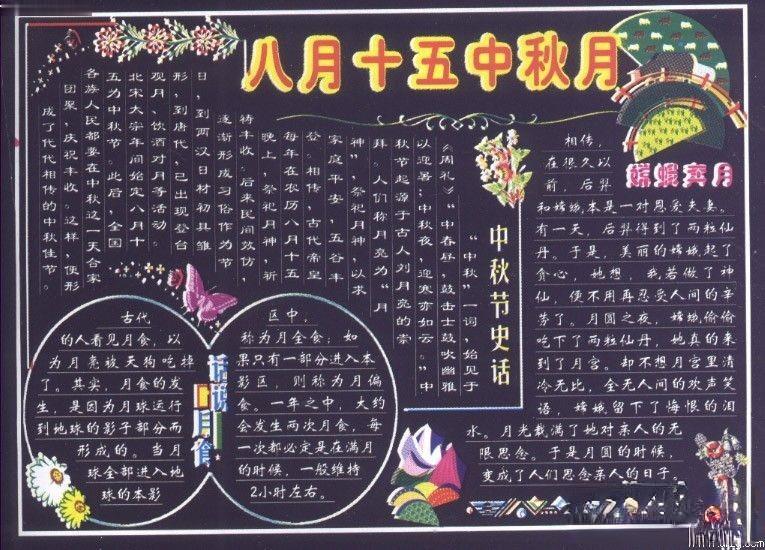 八月十五中秋月
嫦娥奔月
相传，
在很久以
前，后羿
和嫦娥本是一对恩爱夫妻。
有一天，后羿得到了两粒仙
丹。于是，美丽的嫦娥起了
贪心，她想，我若做了神
仙，便不用再忍受人间的辛
劳了。月圆之夜，嫦娥偷偷
吃下了两粒仙丹，她真的来
到了月宫。却不想月宫里清
冷无比，全无人间的欢声笑
语，嫦娥留下了悔恨的泪
水。月光载满了她对亲人的无
限思念。于是月圆的时候，
变成了人们思念亲人的日子
中秋节史话
“中秋”一词，始见于
《周礼》“中春昼，鼓击士鼓吹幽雅
以迎暑；中秋夜，迎寒亦如云。”中
秋节起源于古人刘月亮的崇
拜。人们称月亮为“月
神”，祭祀月神，以求
家庭平安，五谷丰
登。相传，古代帝皇
每年在农历八月十五
晚上，祭祀月神，祈
特丰收。后来民间效仿，
逐渐形成习俗作为节
日，到两汉日材初具雏
形，到唐代，已出现登台
观月、饮酒对月等活动。
北宋太宗年间始定八月十
五为中秋节。此后，全国
各族人民都要在中秋这一天合家
团聚，庆祝丰收。这样，便形
成了代代相传的中秋佳节。
话说月食
古代
的人看见月食，以
为月亮被天狗吃掉
了。其实，月食的发
生，是因为月球运行
到地球的影子部分而
形成的。当月
球全部进入地
球的本影
区中，
称为月全食；如
果只有一部分进入本
影区，则称为月偏
食。一年之中，大约
会发生两次月食，每
一次都必定是在满月
的时候，一般维持
2小时左右。